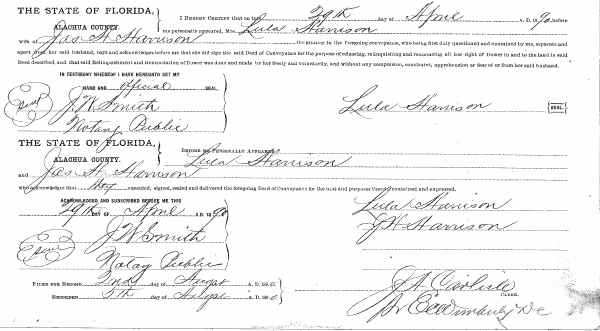 THE STATE OF FLORIDA,
ALACHUA COUNTY.
I HEREBY CERTIFY that on this 29th day of April A. D. 1890, before
me personally appeared, Mrs. Lula Harrison
wife of Jas H Harrison the grantor in the foregoing conveyance, who being first duly questioned and examined by me, separate and
apart from her said husband, says and acknowledges before me that she did sign the said Deed of Conveyance for the purpose of releasing, relinquishing and renouncing all her right of Dower in and to the land in said
Deed described, and that said Relinquishment and Renunciation of Dower was done and made by her freely and voluntarily, and without any compulsion, constraint, apprehension or fear of or from her said husband.
IN TESTIMONY WHEREOF I HAVE HEREUNTO SET MY
HAND AND official SEAL
Seal
J. W. Smith
Notary Public
Lula Harrison SEAL
THE STATE OF FLORIDA,
ALACHUA COUNTY.
BEFORE ME PERSONALLY APPEARED Lula Harrison
and Jas. H. Harrison
who acknowledge that they executed, signed, sealed and delivered the foregoing Deed of Conveyance for the uses and purposes therein contained and expressed.
ACKNOWLEDGED AND SUBSCRIBED BEFORE ME THIS
29th DAY OF April A. D. 1890
Seal
J W Smith
Notary Public
Lula Harrison
J H Harrison
FILED FOR RECORD 2nd day of August A. D. 1890
RECORDED 5th day of August A. D. 1890
J. A. Carlisle
CLERK.
DC